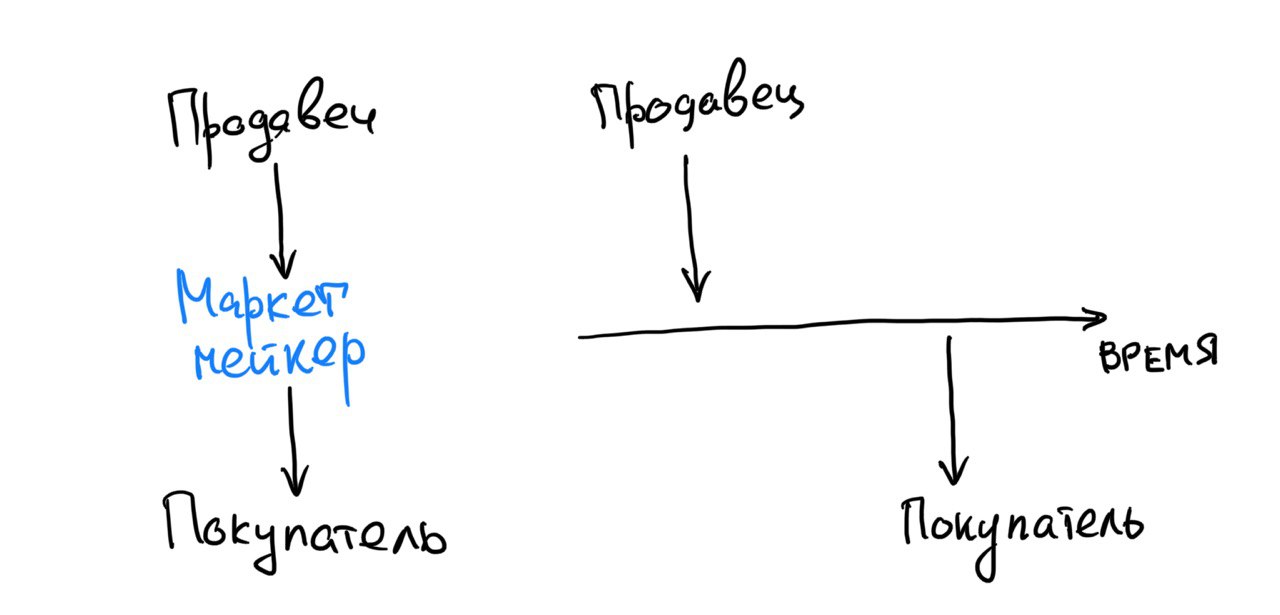 Продавец
Маркет
мейкер
Покупатель
Продавец
ВРЕМЯ
Покупатель